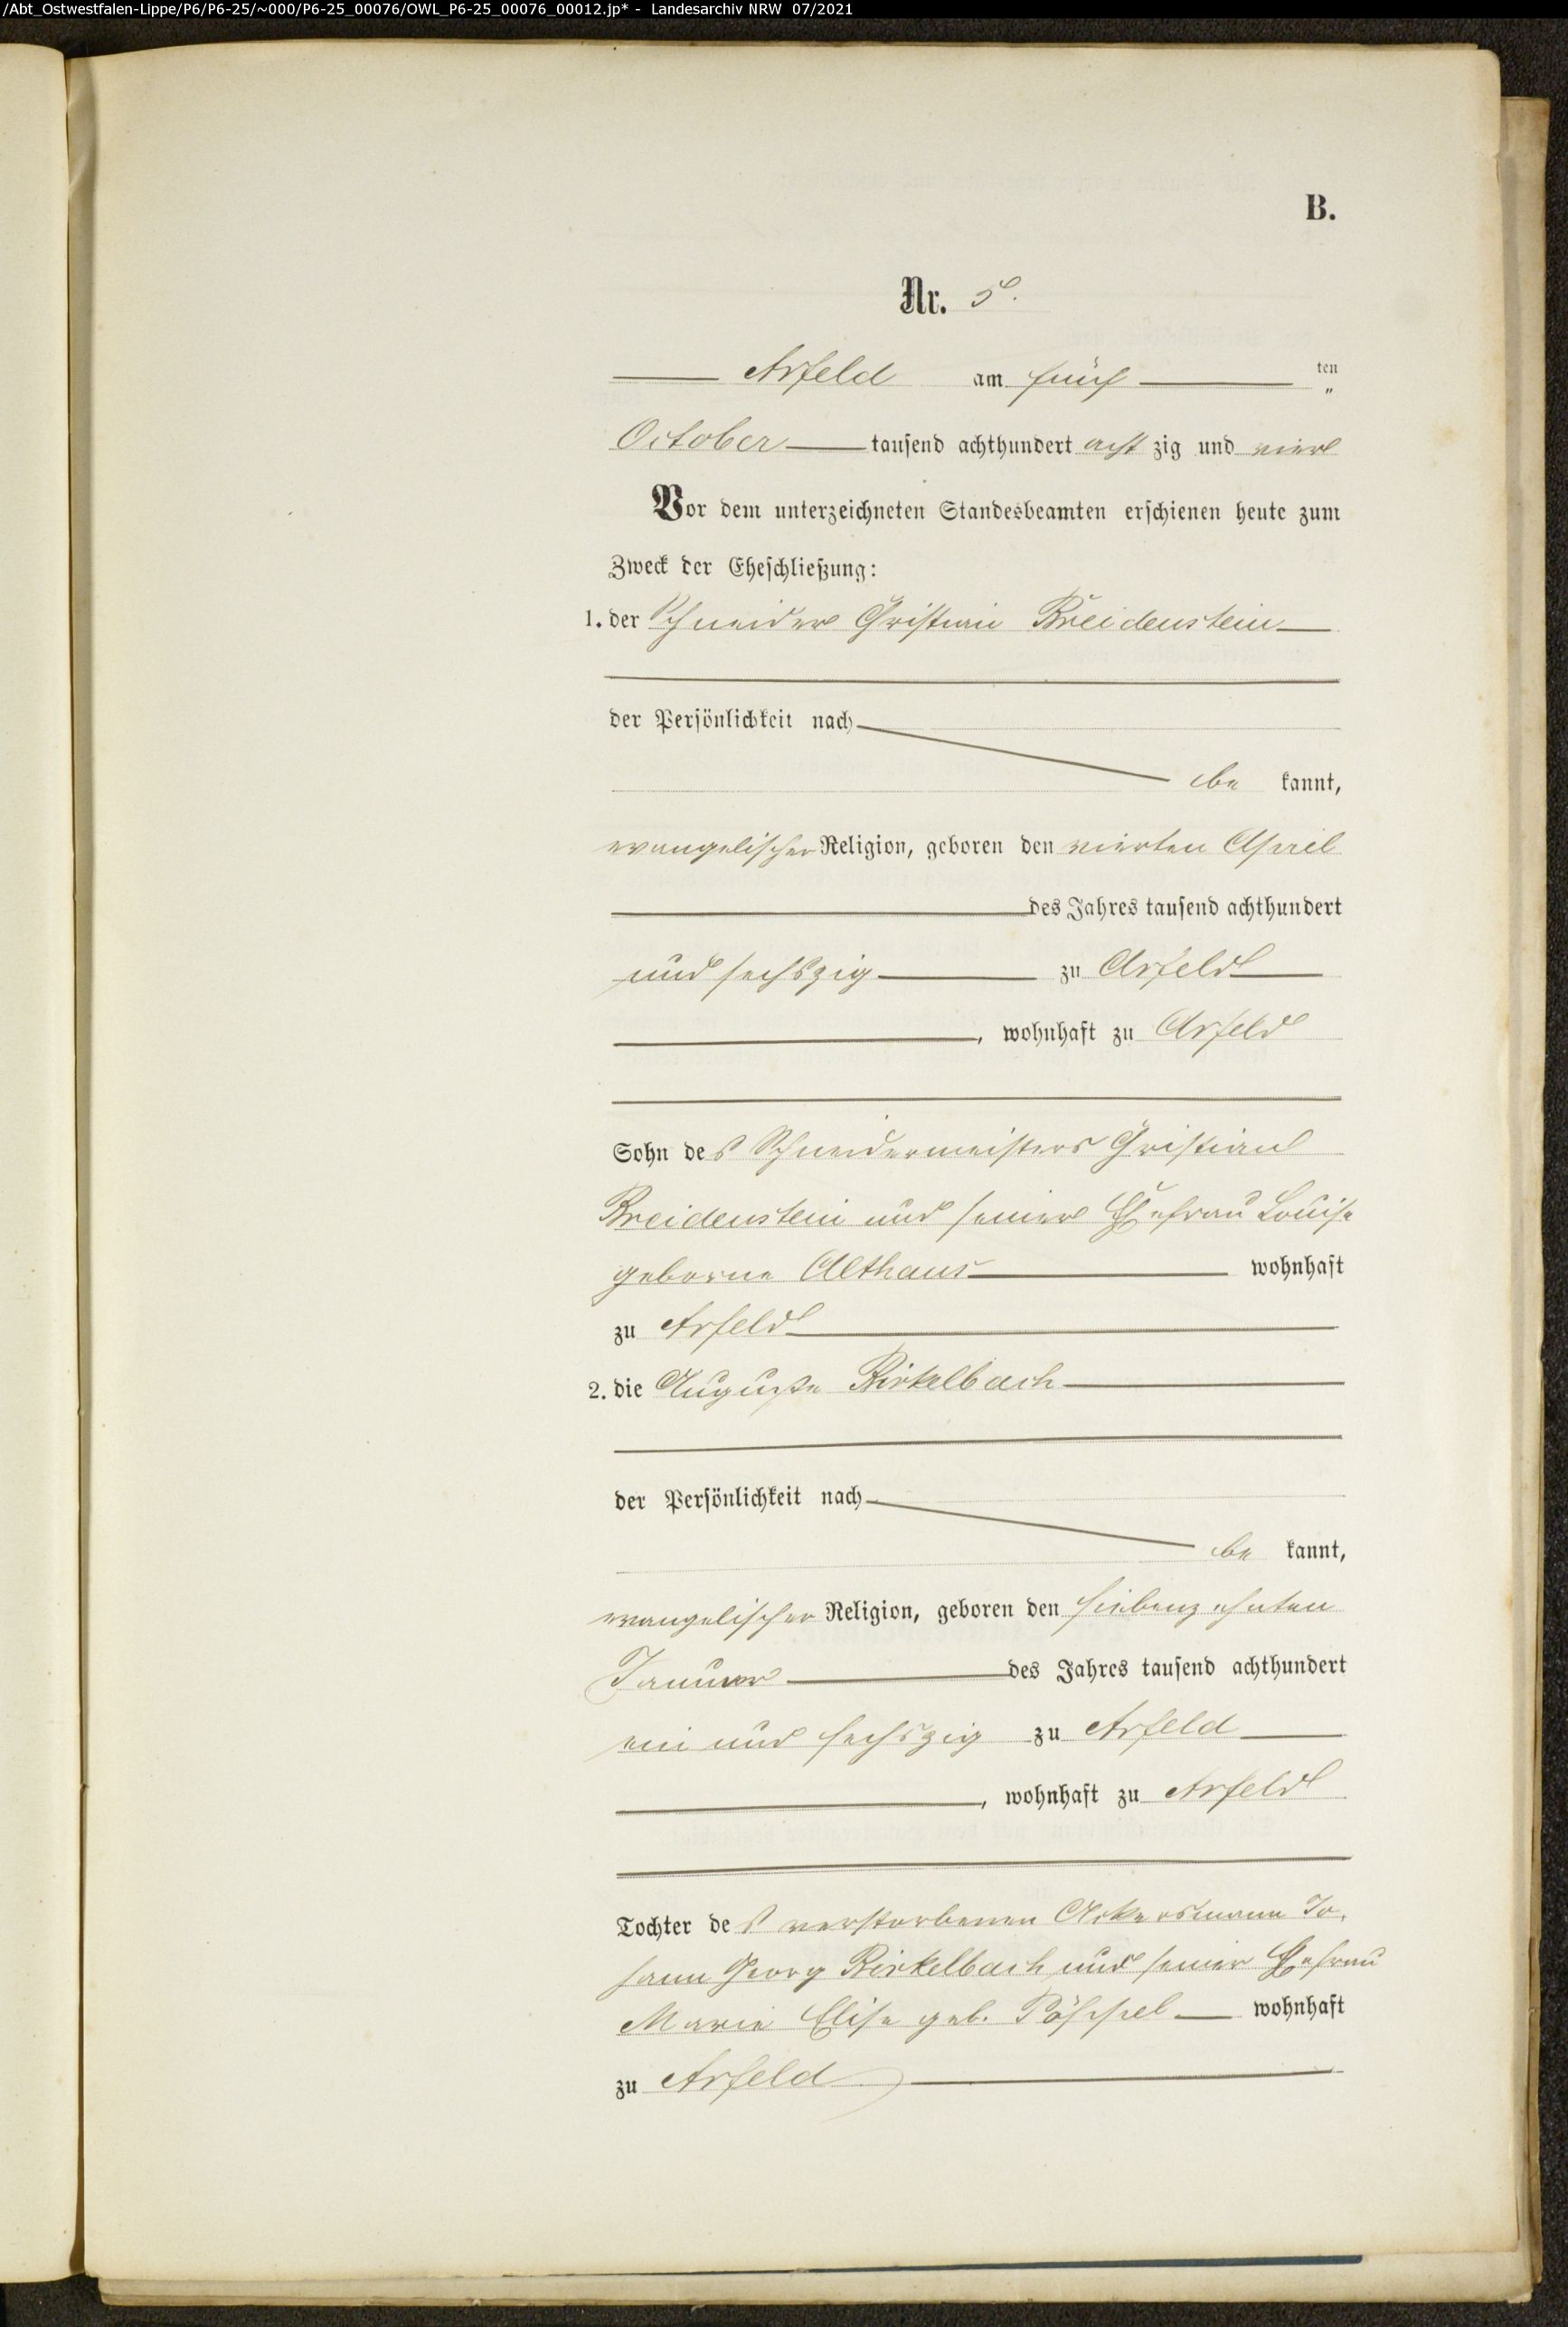 /Abt_Ostwestfalen-Lippe/P6/P6-25/~000/P6-25_00076/OWL_P6-25_00076_00012.jp* - Landesarchiv NRW 07/2021
B.
Nr. 5.
Arfeld am fünf ten
October tausend achthundert acht zig und vier
Vor dem unterzeichneten Standesbeamten erschienen heute zum
Zweck der Eheschließung:
1. der Schneider Christian Breidenstein
der Persönlichkeit nach
be kannt,
evangelischer Religion, geboren den vierten April
des Jahres tausend achthundert
und sechszig zu Arfeld
, wohnhaft zu Arfeld
Sohn des Schneidermeisters Christian
Breidenstein und seiner Ehefrau Louise
geborne Althaus wohnhaft
zu Arfeld
2. die Auguste Birkelbach
der Persönlichkeit nach
be kannt,
evangelischer Religion, geboren den siebenzehnten
Januar des Jahres tausend achthundert
ein und sechszig zu Arfeld
, wohnhaft zu Arfeld
Tochter des verstorbenen Ackersmann Jo-
hann Georg Birkelbach und seiner Ehefrau
Marie Elise geb. wohnhaft
zu Arfeld